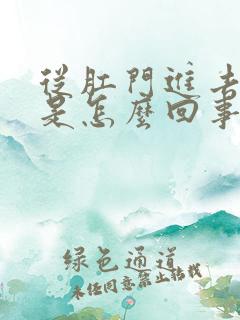 從肛門進去
是怎麼回事
綠色通道
未经同意禁止转载